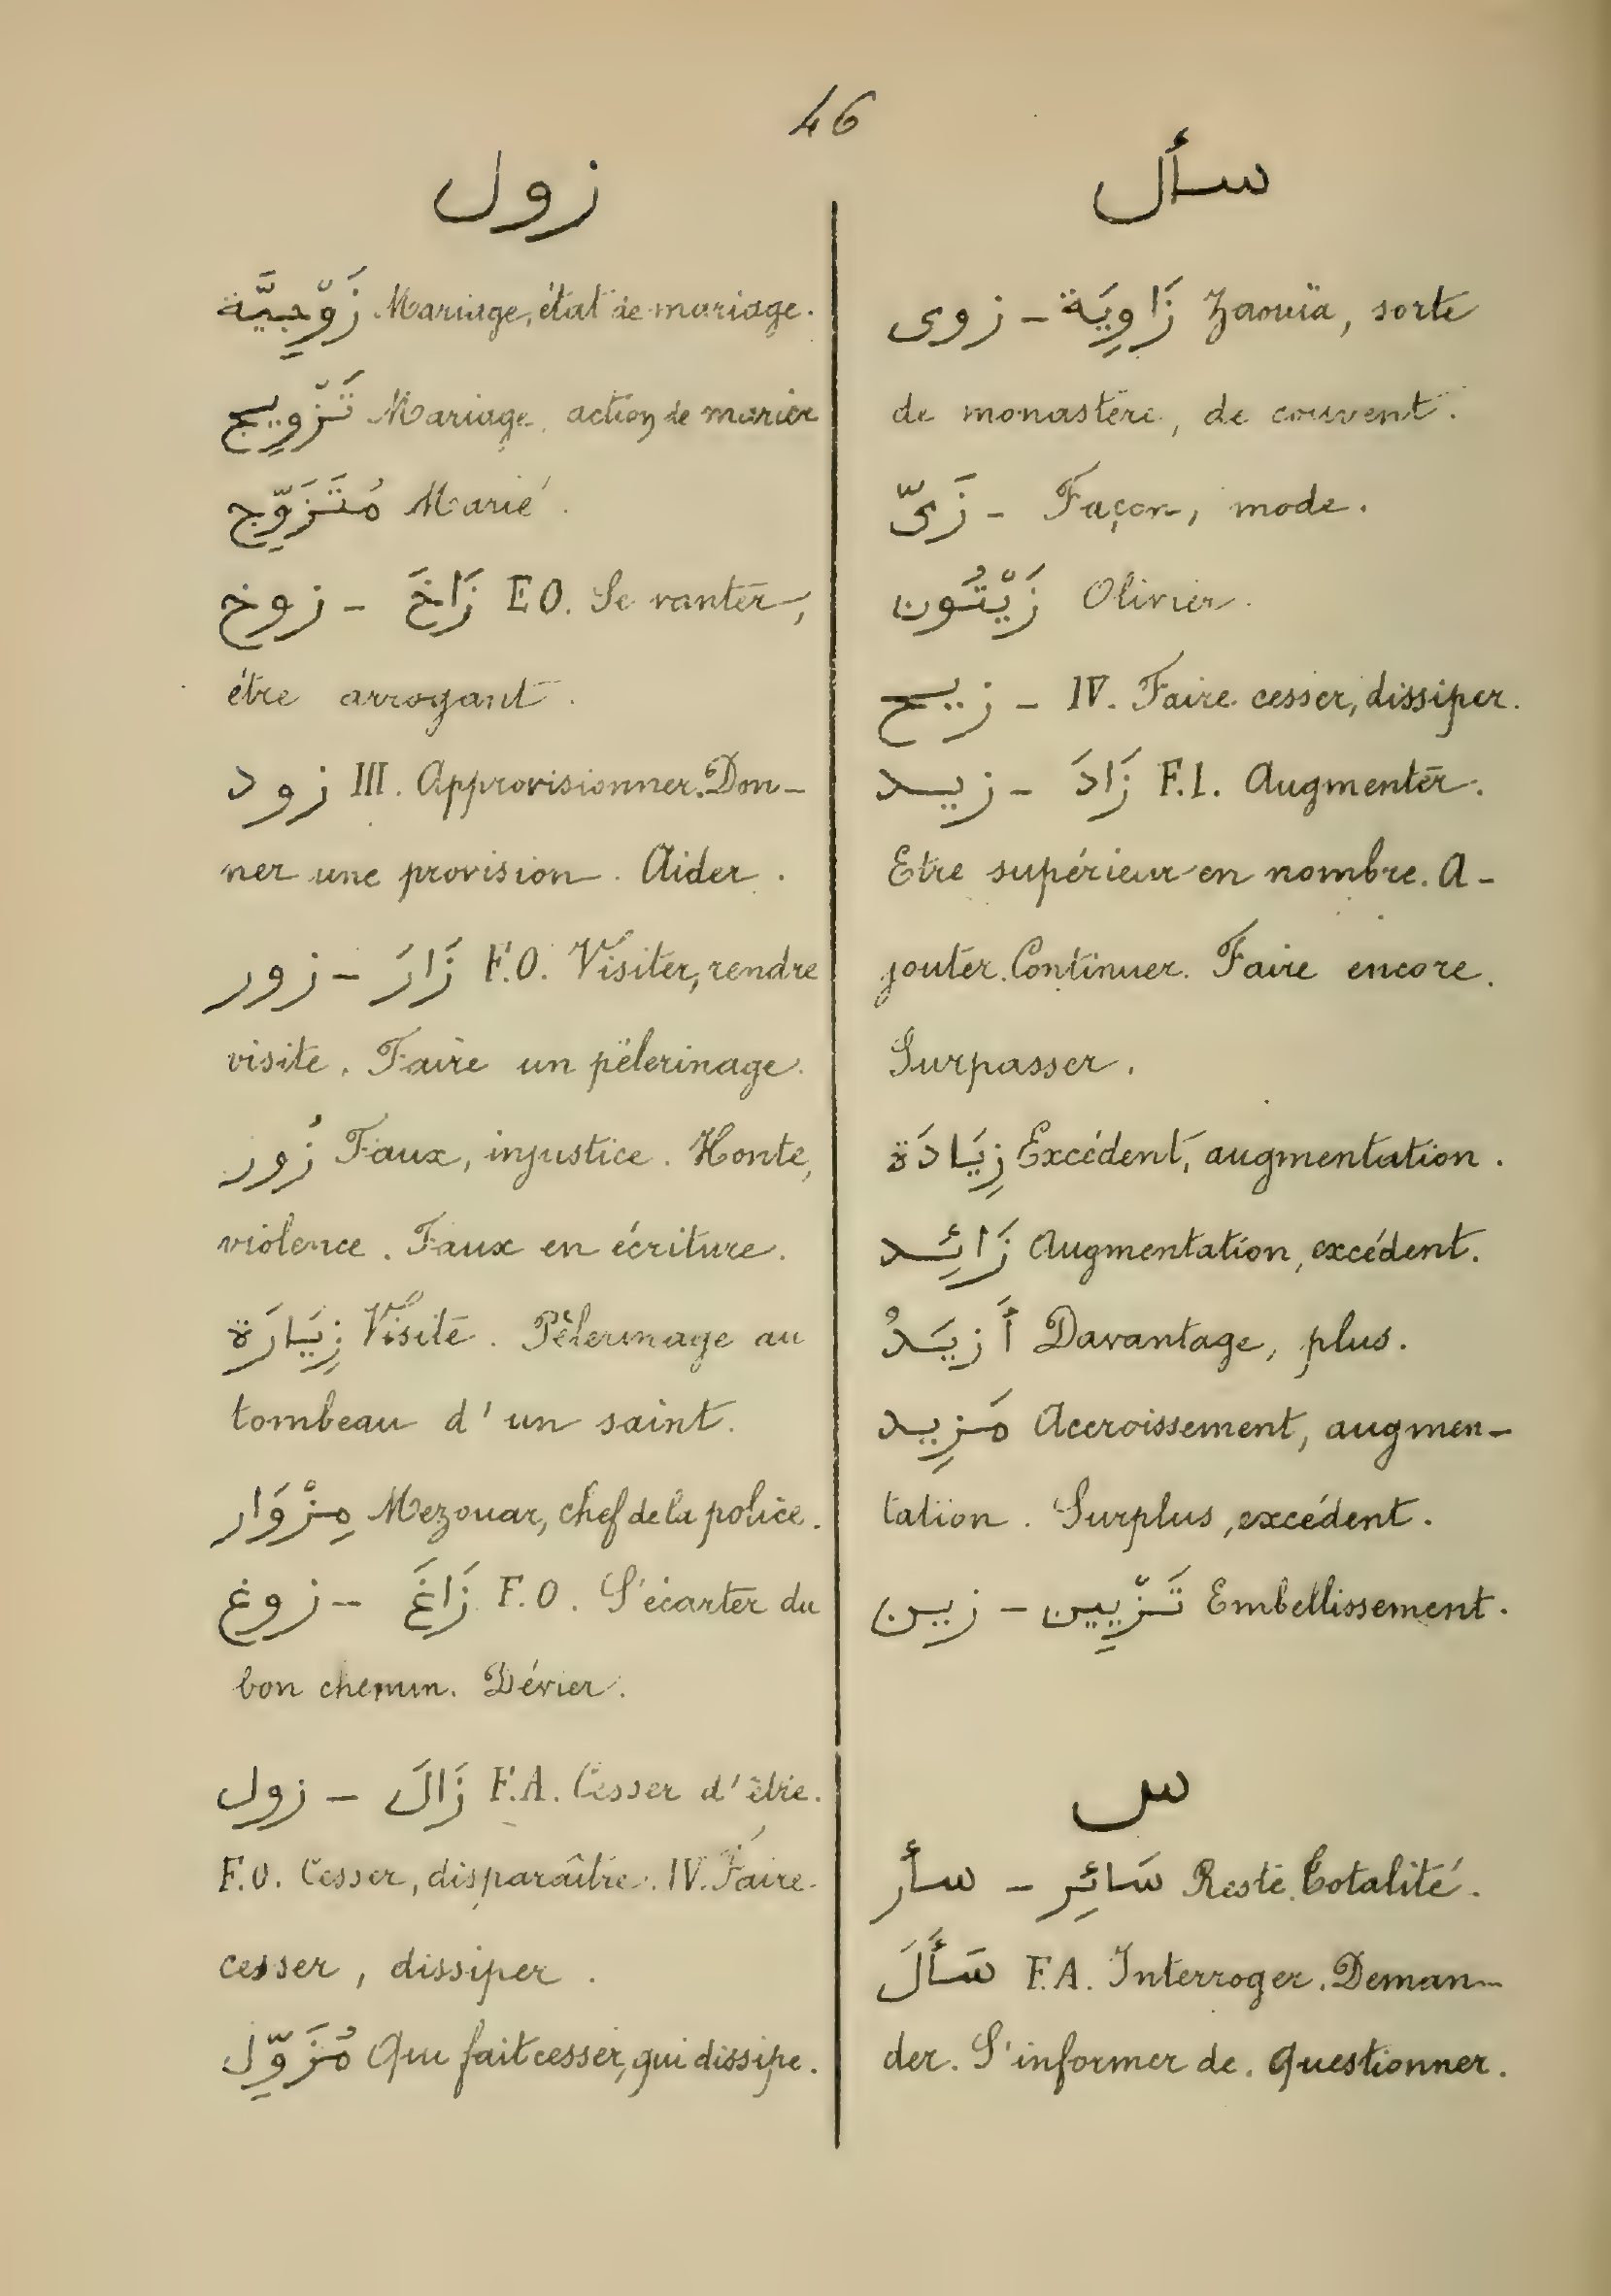 46
زول
زَوْجِيَّة Mariage, état de mariage.
تَزْوِيج Mariage, action de marier
مُتَزَوِّج Marié.
زوخ - زَاخَ F.O. Se vanter,
être arrogant.
زود III. Approvisionner. Don-
ner une provision. Aider.
زور - زَارَ F.O. Visiter, rendre
visite. Faire un pèlerinage.
زُور Faux, injustice. Honte,
violence. Faux en écriture.
زِيَارَة Visite. Pèlerinage au
tombeau d'un saint.
مِزْوَار Mezouar, chef de la police.
زوغ - زَاغَ F.O. S'écarter du
bon chemin. Dévier.
زول - زَالَ F.A. Cesser d'être.
F.O. Cesser, disparaître. IV. Faire
cesser, dissiper.
مُزَوِّل Qui fait cesser, qui dissipe.
سأل
زوى - زَاوِيَة Zaouïa, sorte
de monastère, de couvent.
زَىّ - Façon, mode.
زَيْتُون Olivier.
زيح - IV. Faire cesser, dissiper.
زيد - زَادَ F.I. Augmenter.
Etre supérieur en nombre. A-
jouter. Continuer. Faire encore.
Surpasser.
زِيَادَة Excédent, augmentation.
زَائِد Augmentation, excédent.
أَزيَدُ Davantage, plus.
مَزِيد Accroissement, augmen-
tation. Surplus, excédent.
زين - تَزْيِين Embellissement.
س
سأر - سَائِر Reste. Totalité.
سَأَلَ F.A. Interroger. Deman-
der. S'informer de. Questionner.